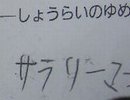 ーしょうらいのゆめ
サラリーマー